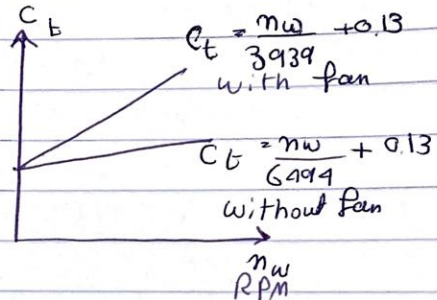 C_t
C_t = n_w/3939 + 0.13
with fan
C_t = n_w/6494 + 0.13
without fan
n_w
RPM